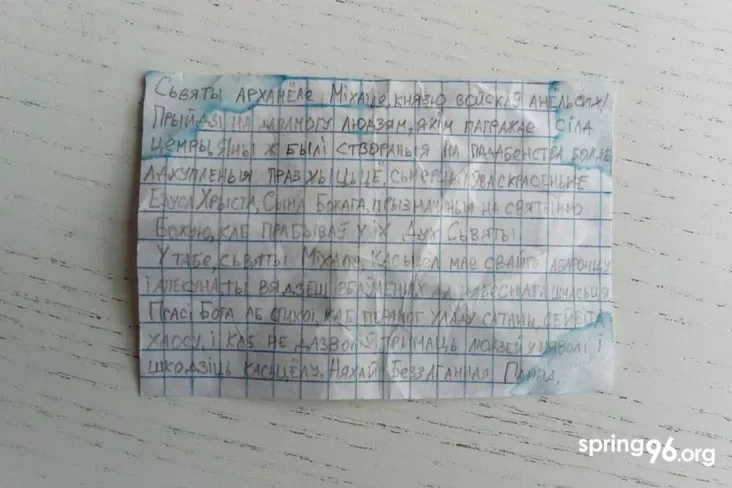 Сьвяты Арханёле Міхаіле, князю войскаў анёльскіх!
Прыйдзі на дапамогу людзям, якім пагражае сіла
цемры, яны ж былі створаныя на падабенства Божае
адкупленыя праз жыцьцё, сьмерць і ўваскрасеньне
Езуса Хрыста, Сына Божага, прызначаныя на святыню
Божую, каб прабываў у іх Дух Сьвяты
У табе, сьвяты Міхале, Касьцёл мае свайго абаронцу
і апекуна ты вядзеш збаўленых да нябеснага шчасьця
Прасі Бога аб спакоі, каб перамог уладу сатаны,
хаосу, і каб не дазволіў трымаць людзей у няволі і
шкодзіць касьцёлу. Няхай Беззаганная Панна,
spring96.org